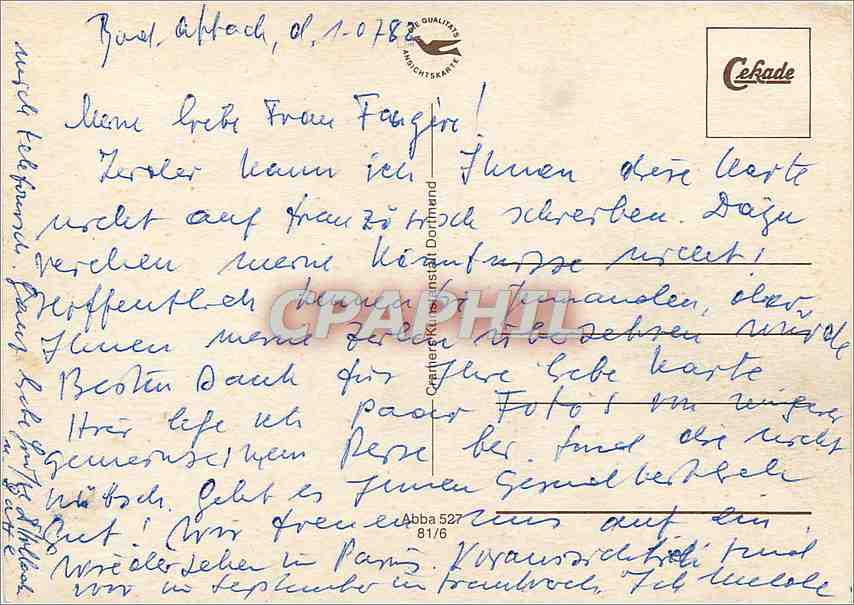 Bad Abbach, d. 1.0782
DIE QUALITÄTS
ANSICHTSKARTE
Cekade
Meine liebe Frau
Leider kann ich Ihnen diese Karte
nicht auf französisch schreiben. Dazu
reichen meine Kenntnisse nicht!
Hoffentlich kennen Sie Jemanden, der
Ihnen meine Zeilen übersetzen würde
Besten Dank für Ihre liebe Karte
Hier lege ich paar Foto's von unserer
gemeinsamen Reise bei. Sind die nicht
hübsch. Geht es Ihnen Gesundheitlich
Gut! Wir freuen uns auf ein
Wiedersehen in Paris. Voraussichtlich sind
wir im September in Frankreich. Ich melde
mich telefonisch. Ganz liebe Grüße
CPAPHIL
Cramers Kunstanstalt Dortmund
Abba 527
81/6